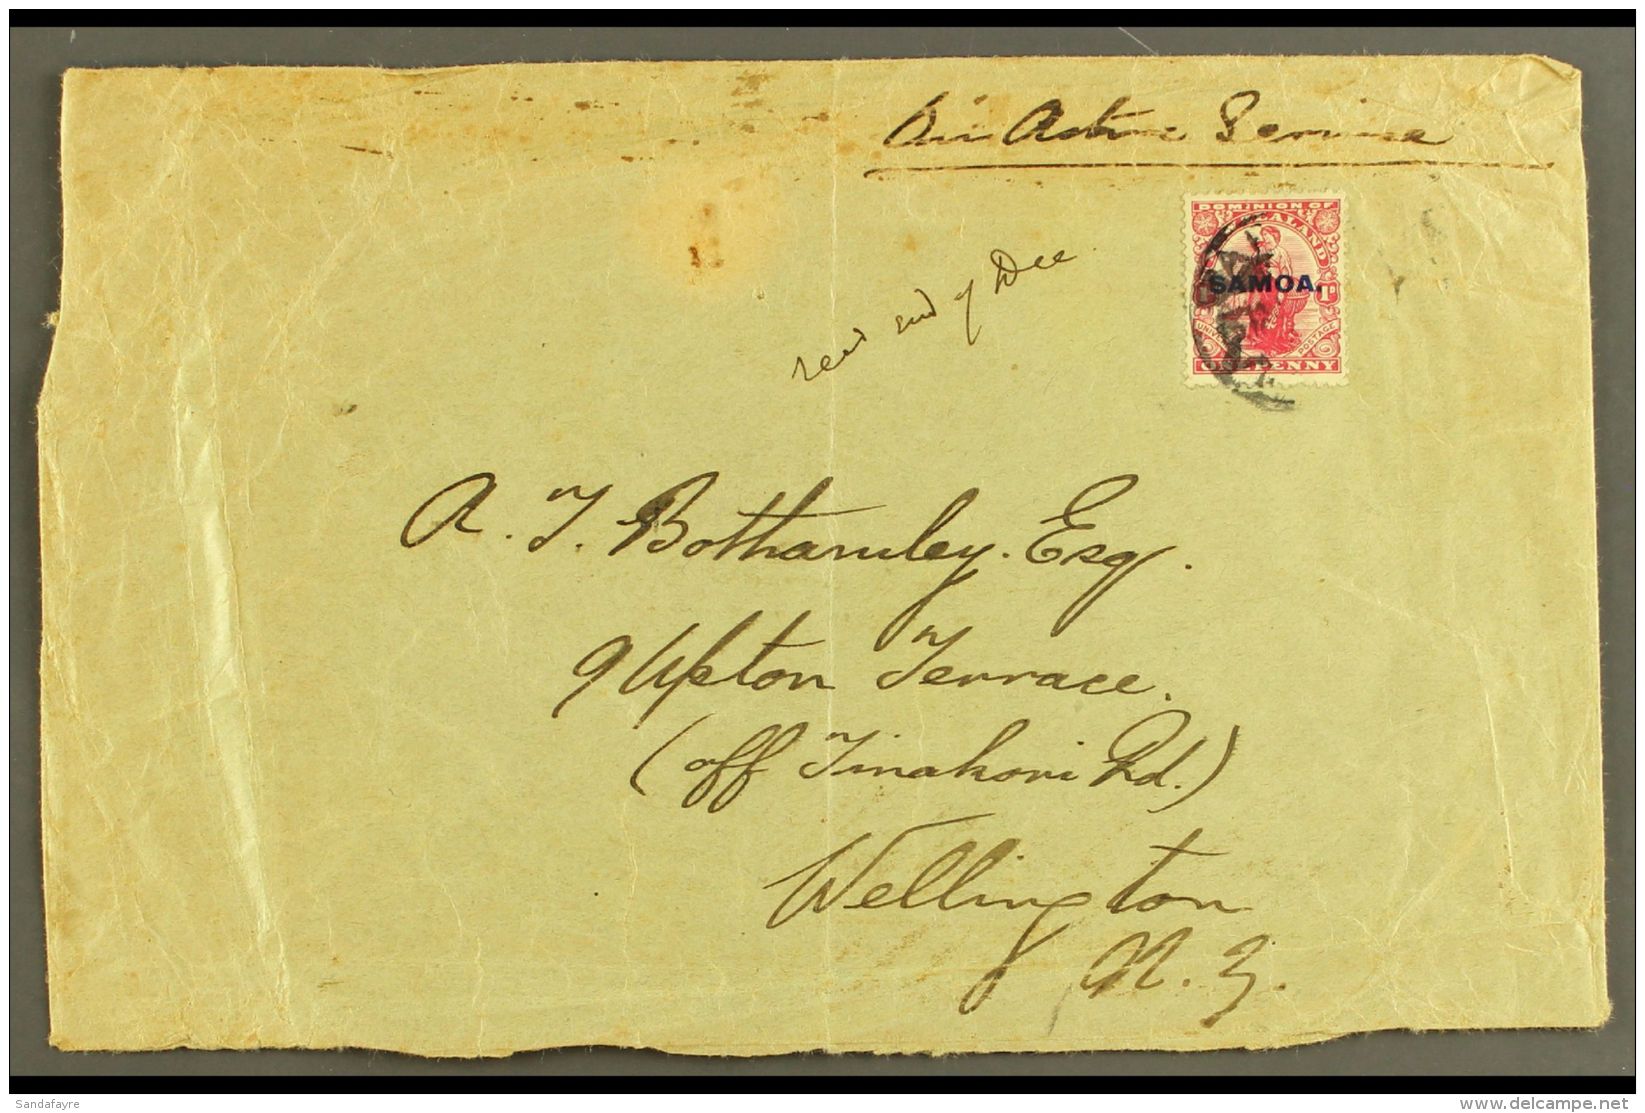 On Active Service
DOMINION OF
ZEALAND
SAMOA.
1D
UNIVERSAL POSTAGE
ONE PENNY
recd end of Dec
A. T. Bothamley. Esq.
9 Upton Terrace.
(off Tinakori Rd.)
Wellington
N. Z.
Sandafayre
www.delcampe.net